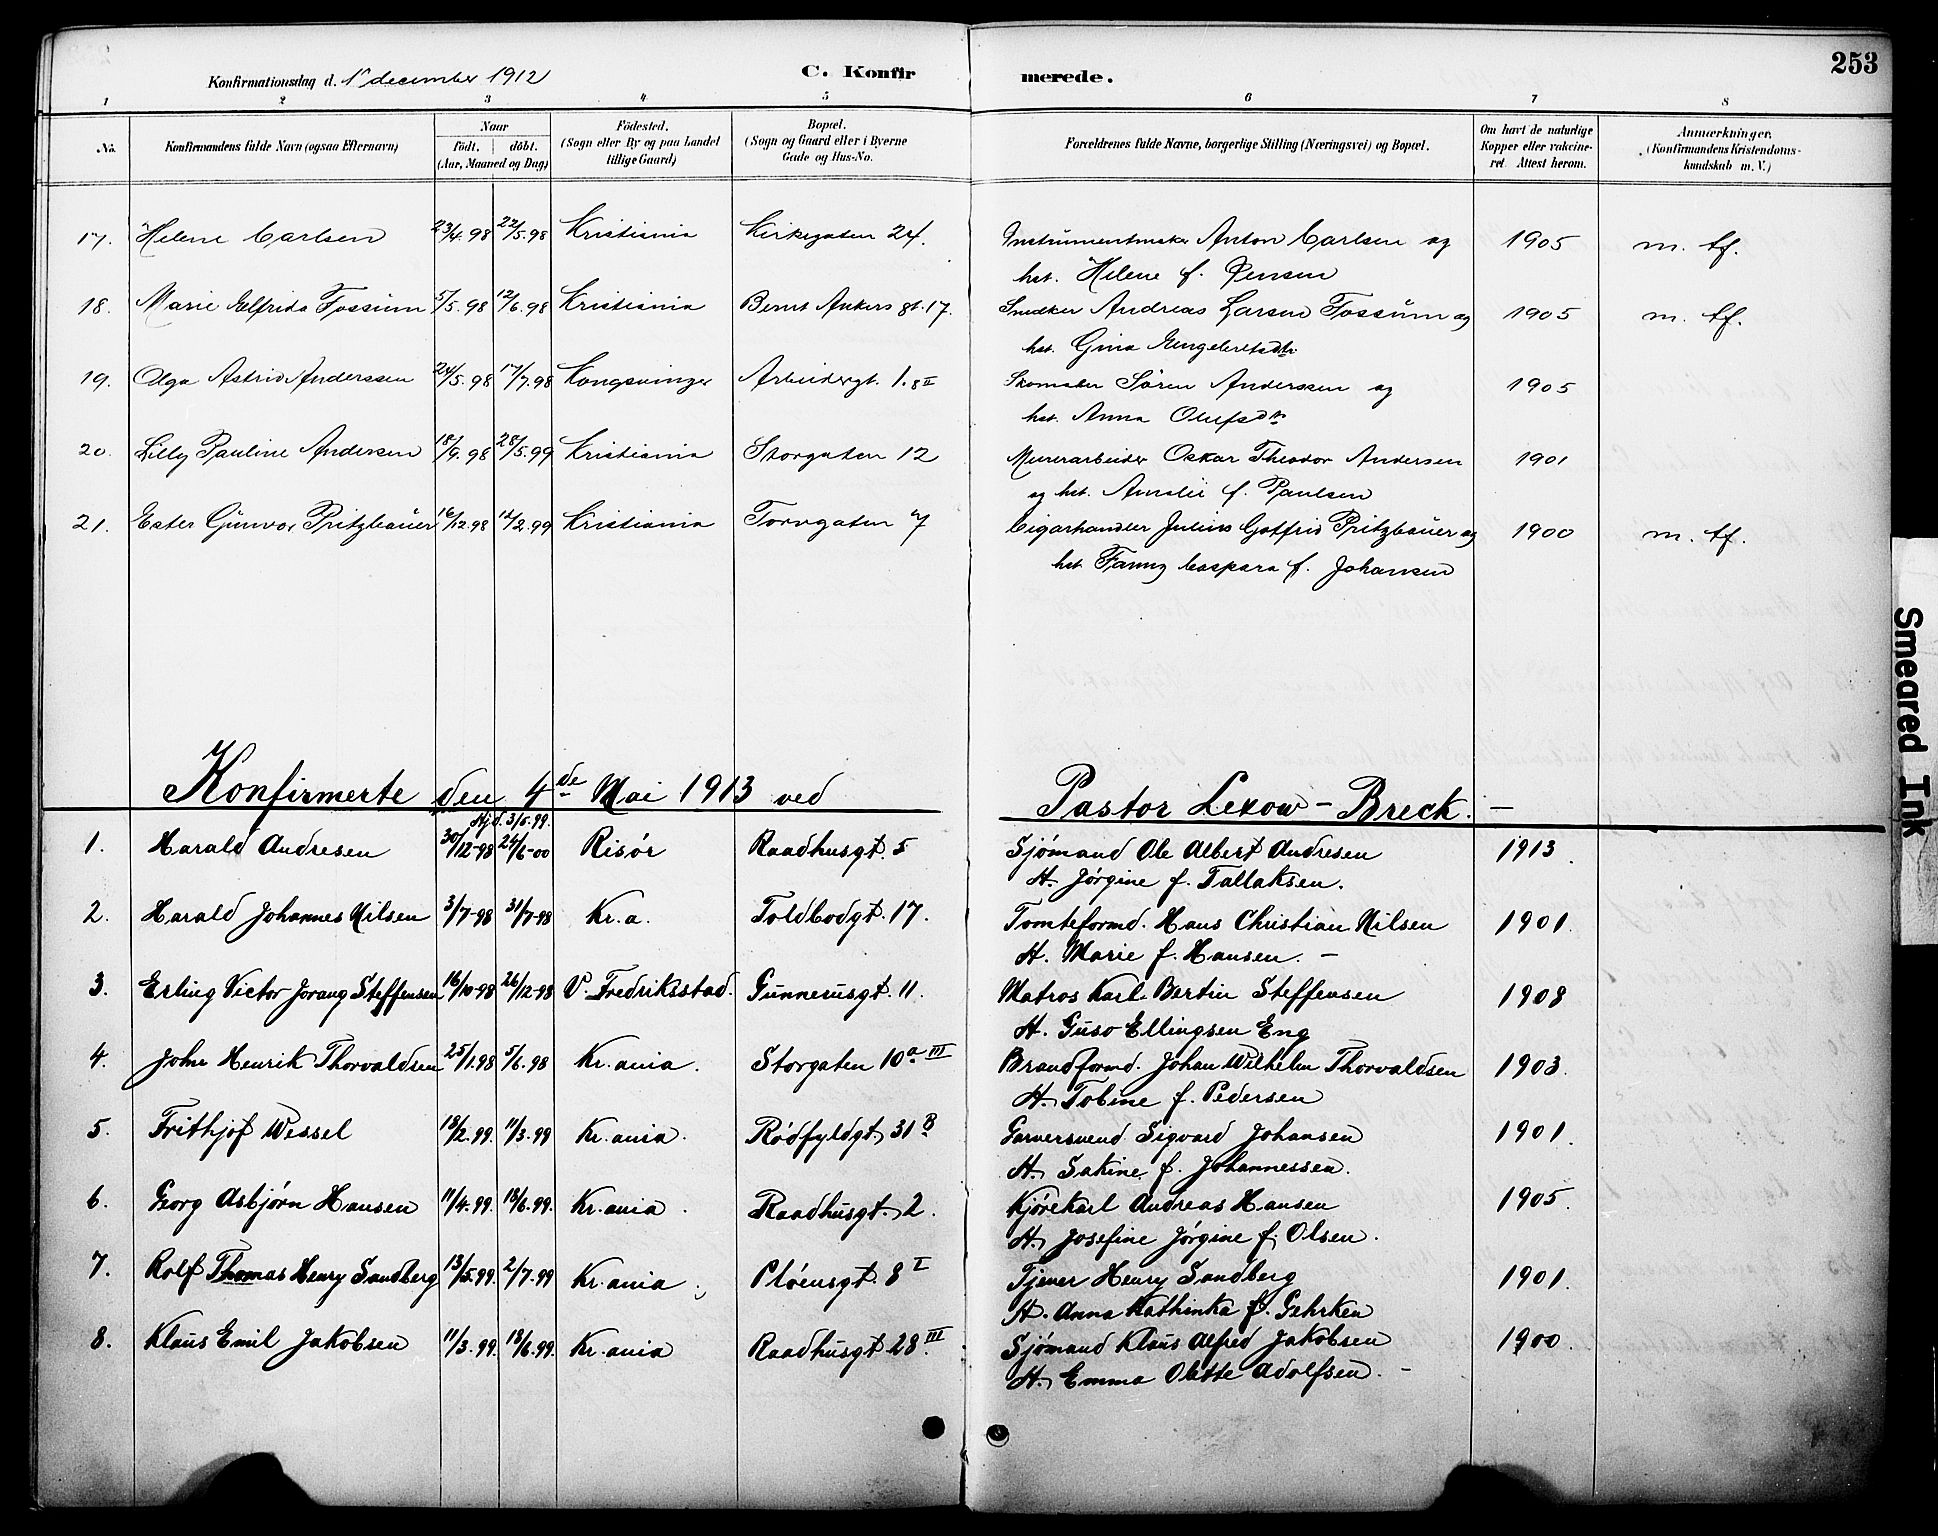 253
Konfirmationsdag d. 1ste december 1912 C. Konfirmerede.
1 2 3 4 5 6 7 8
No. Konfirmandens fulde Navn (ogsaa Efternavn) Naar födt. döbt. (Aar, Maaned og Dag) Födested. (Sogn eller By og paa Landet tillige Gaard) Bopæl. (Sogn og Gaard eller i Byerne Gade og Hus-No. Forældrenes fulde Navne, borgerlige Stilling (Næringsvei) og Bopæl. Om havt de naturlige Kopper eller vakcineret. Attest herom. Anmærkninger. (Konfirmandens Kristendomskundskab m. V.)
17. Helene Carlsen 23/4.98 22/5.98 Kristiania Kirkegaten 24. Instrumentmaker Anton Carlsen og 1905 m. tf.
hst. Helene f. Jensen
18. Marie Elfrida Fossum 5/5.98 12/6.98 Kristiania Bernt Ankers gt. 17. Snedker Andreas Larsen Fossum og 1905 m. tf.
hst. Gina Engebretsdtr
19. Olga Astrid Anderssen 24/5.98 17/7.98 Kongsvinger Arbeidergt. 1.8 II Skomaker Sören Anderssen og 1905
hst. Anna Olufsdtr
20. Lilly Pauline Andersen 18/9.98 28/5.99 Kristiania Storgaten 12 Murerarbeider Oskar Theodor Andersen 1901
og hst. Amalie f. Paulsen
21. Ester Gunvor Pritzbauer 16/12.98 12/2.99 Kristiania Torvgaten 7 Cigarhandler Julius Gotfrid Pritzbauer og 1900 m. tf.
hst. Fanny Caspara f. Johansen
Konfirmerte den 4de Mai 1913 ved Pastor Lexow-Breck. –
Hjd. 3/5.99.
1. Harald Andresen 30/12-98 24/6-00 Risör Raadhusgt. 5 Sjömand Ole Albert Andresen 1913.
H. Jörgine f. Tallaksen.
2. Harald Johannes Nilsen 3/7-98 31/7-98 Kr.a. Toldbodgt. 17. Tomteformd. Hans Christian Nilsen 1901.
H. Marie f. Hansen. –
3. Erling Victor Jorang Steffensen 16/10-98 26/12-98 V. Fredriksstad. Gunnerusgt. 11. Matros Karl Bertin Steffensen 1908
H. Guso Ellingsen Eng
4. John Henrik Thorvaldsen 25/1.98 5/6.98 Kr.ania. Storgaten 10a III Brandformd. Johan Wilhelm Thorvaldsen 1903.
H. Tobine f. Pedersen
5. Frithjof Wessel 18/2.99. 11/3.99 Kr.ania. Rödfyldgt. 31B Garversvend Sigvard Johansen 1901.
H. Sakine f. Johannessen.
6. Georg Asbjörn Hansen 11/4.99. 18/6.99. Kr.ania. Raadhusgt. 2. Kjörekarl Andreas Hansen 1905.
H. Josefine Jörgine f. Olsen.
7. Rolf Thomas Henry Sandberg 13/5.99. 2/7.99 Kr.ania. Plöensgt. 8 I Tjener Henry Sandberg 1901.
H. Anna Kathinka f. Gehrken
8. Klaus Emil Jakobsen 11/3.99. 18/6.99. Kr.ania Raadhusgt. 28 III Sjömand Klaus Alfred Jakobsen 1900.
H. Emma Olette Adolfsen. –
Smeared Ink